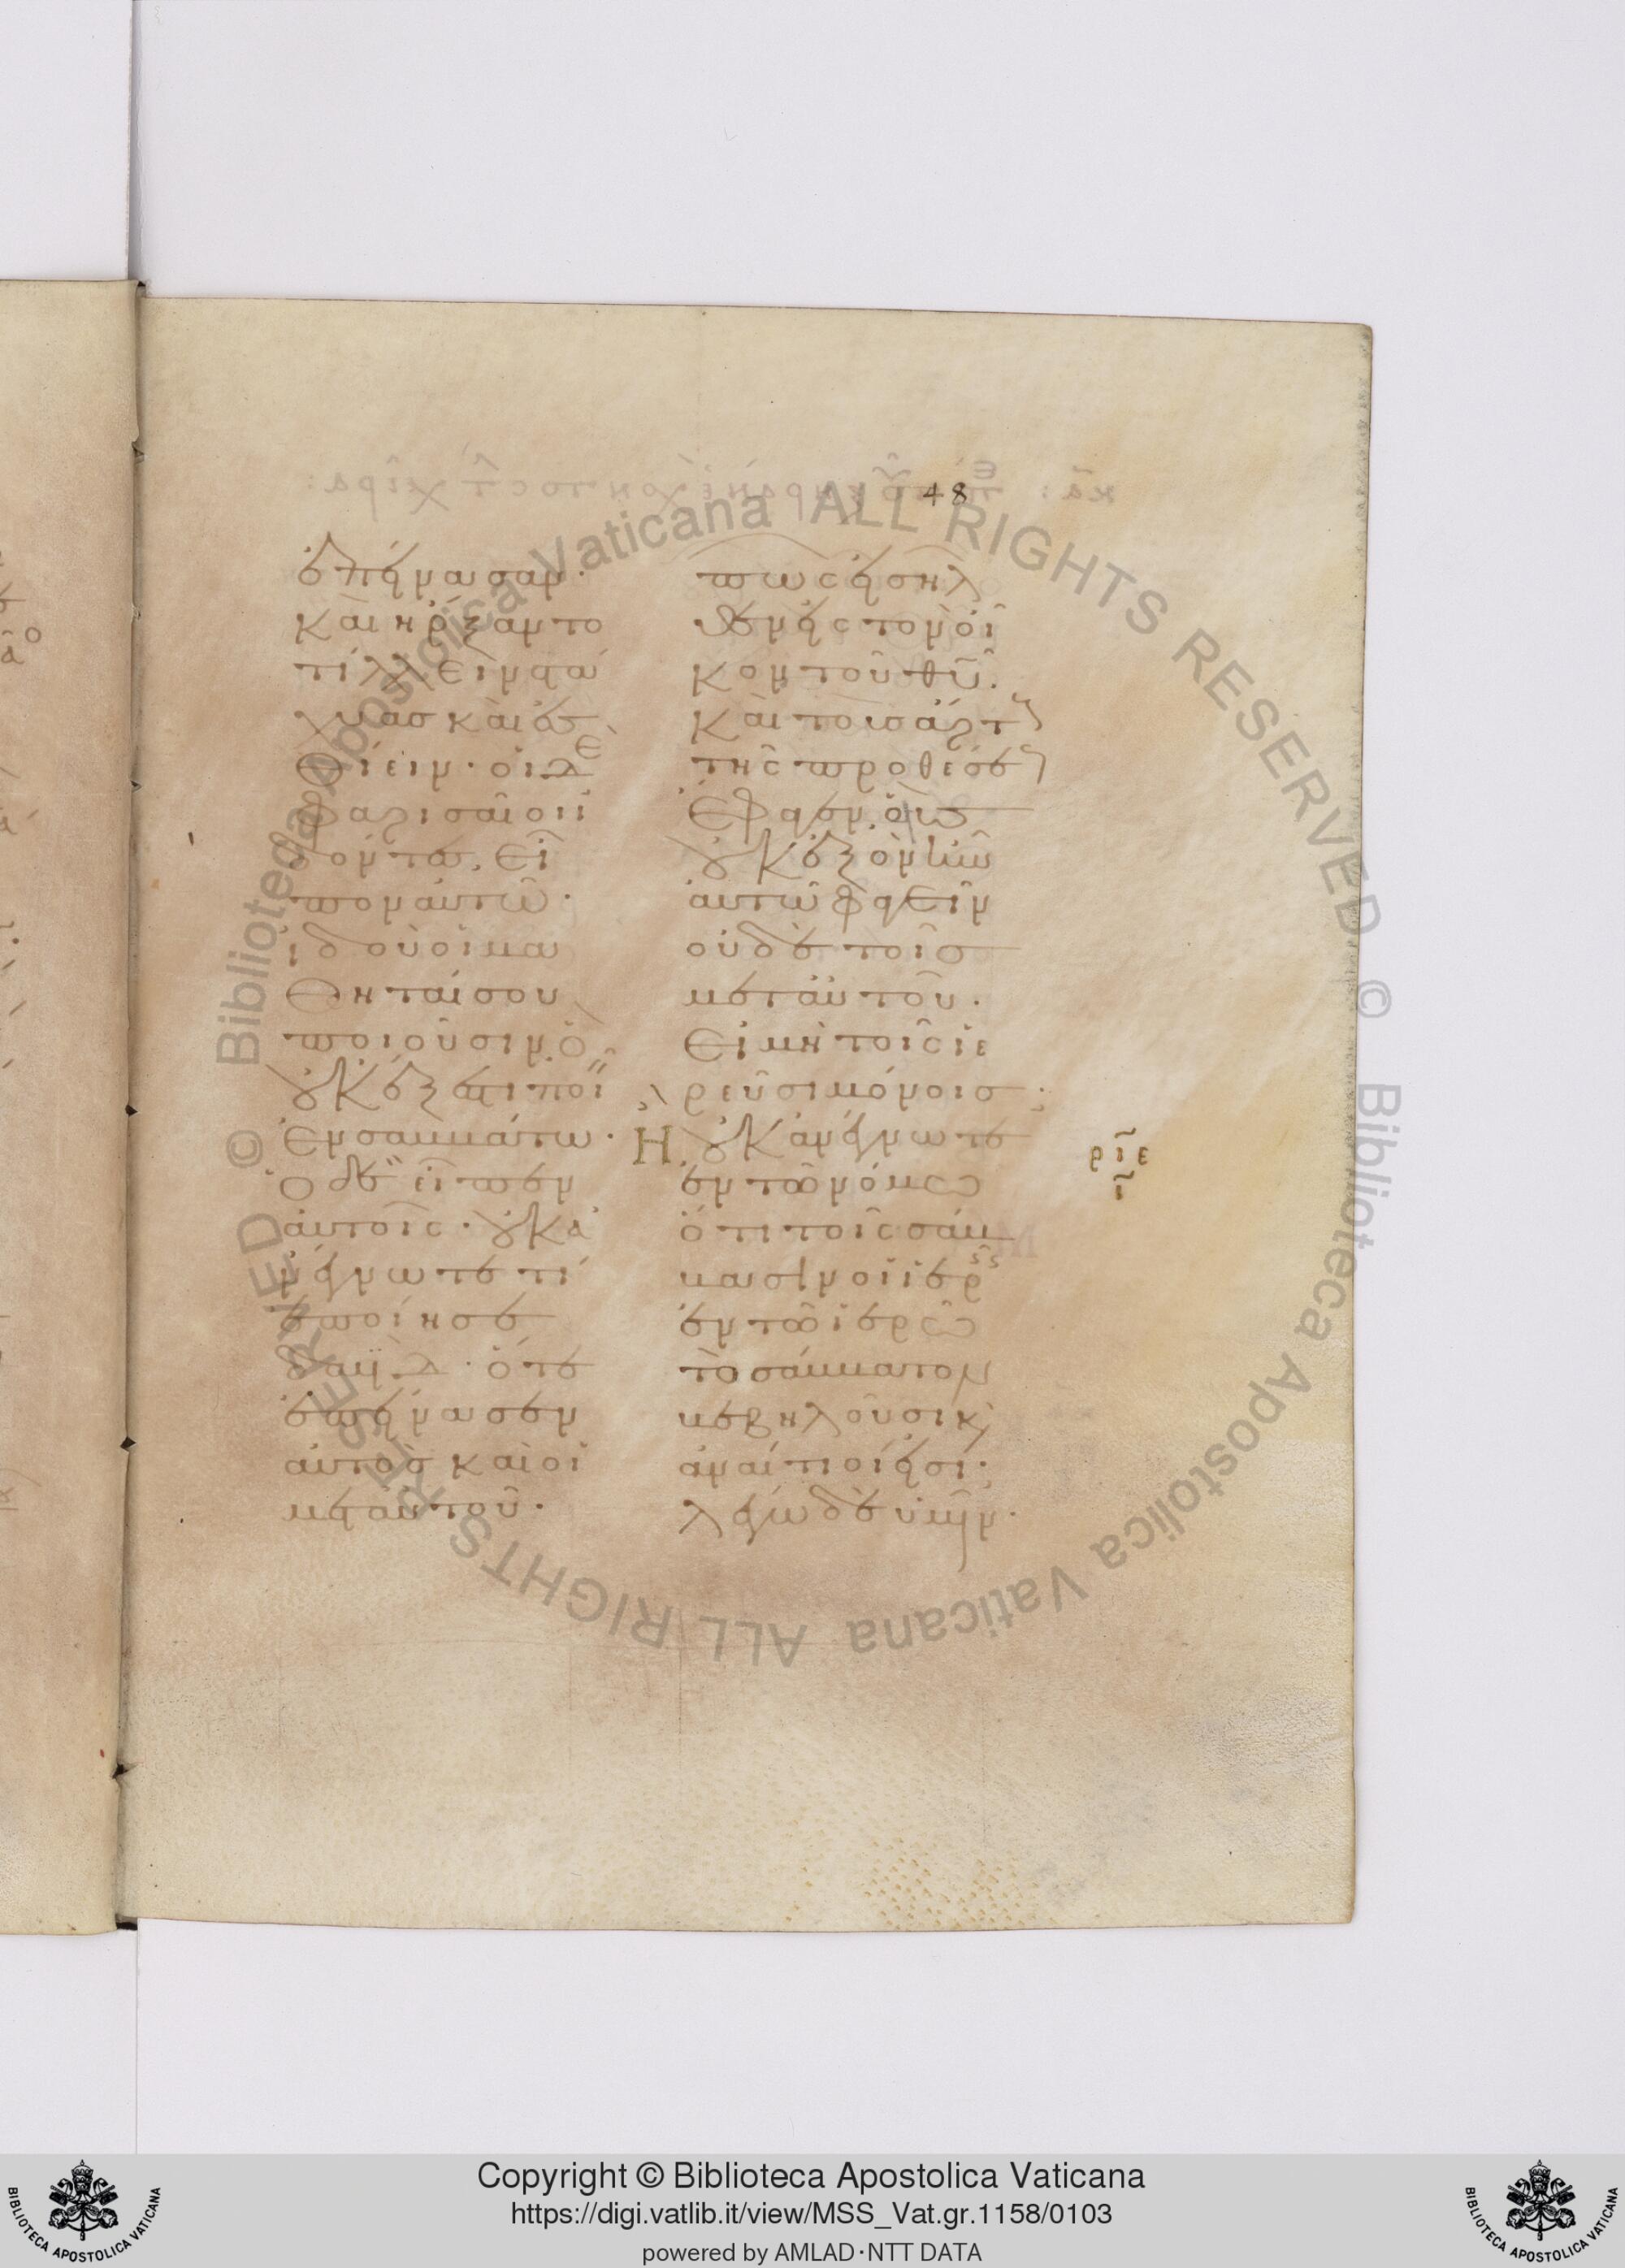 48
ἐπείνασαν·
καὶ ἤρξαντο
τίλλειν στά
χυας καὶ ἐσ
θίειν· οἱ δὲ
φαρισαῖοι ἰ
δόντες, εἶ
πον αὐτῶ·
ἰδοὺ οἱ μα
θηταί σου
ποιοῦσιν, ὃ
οὐκ ἔξεστι ποι
ἐν σαββάτω·
ὁ δὲ εἶπεν
αὐτοῖς· οὐκ ἀ
νέγνωτε τί
ἐποίησε
δα̅δ̅· ὅτε
ἐπείνασεν
αὐτὸς καὶ οἱ
μετ αὐτοῦ·
πῶς εἰσῆλ
θεν εἰς τὸν οἶ
κον τοῦ θ̅υ̅·
καὶ τοὺς ἄρτ
τῆς προθέσε
ἔφαγεν, οὓς
οὐκ ἐξὸν ἦν
αὐτῶ φαγεῖν
οὐδὲ τοῖς
μετ αὐτοῦ·
εἰ μὴ τοῖς ἱε
ρεῦσι μόνοις·
Ἢ οὐκ ἀνέγνωτε
ρ̅ι̅ε̅
ι̅
ἐν τῶ νόμω
ὅτι τοῖς σάβ
βασιν οἱ ἱερεῖς
ἐν τῶ ἱερῶ
τὸ σάββατον
βεβηλοῦσι κ
ἀναίτιοί εἰσι·
λέγω δὲ ὑμῖν·
Copyright © Biblioteca Apostolica Vaticana
https://digi.vatlib.it/view/MSS_Vat.gr.1158/0103
powered by AMLAD·NTT DATA
BIBLIOTECA APOSTOLICA VATICANA
BIBLIOTECA APOSTOLICA VATICANA
© Biblioteca Apostolica Vaticana ALL RIGHTS RESERVED © Biblioteca Apostolica Vaticana ALL RIGHTS RESERVED